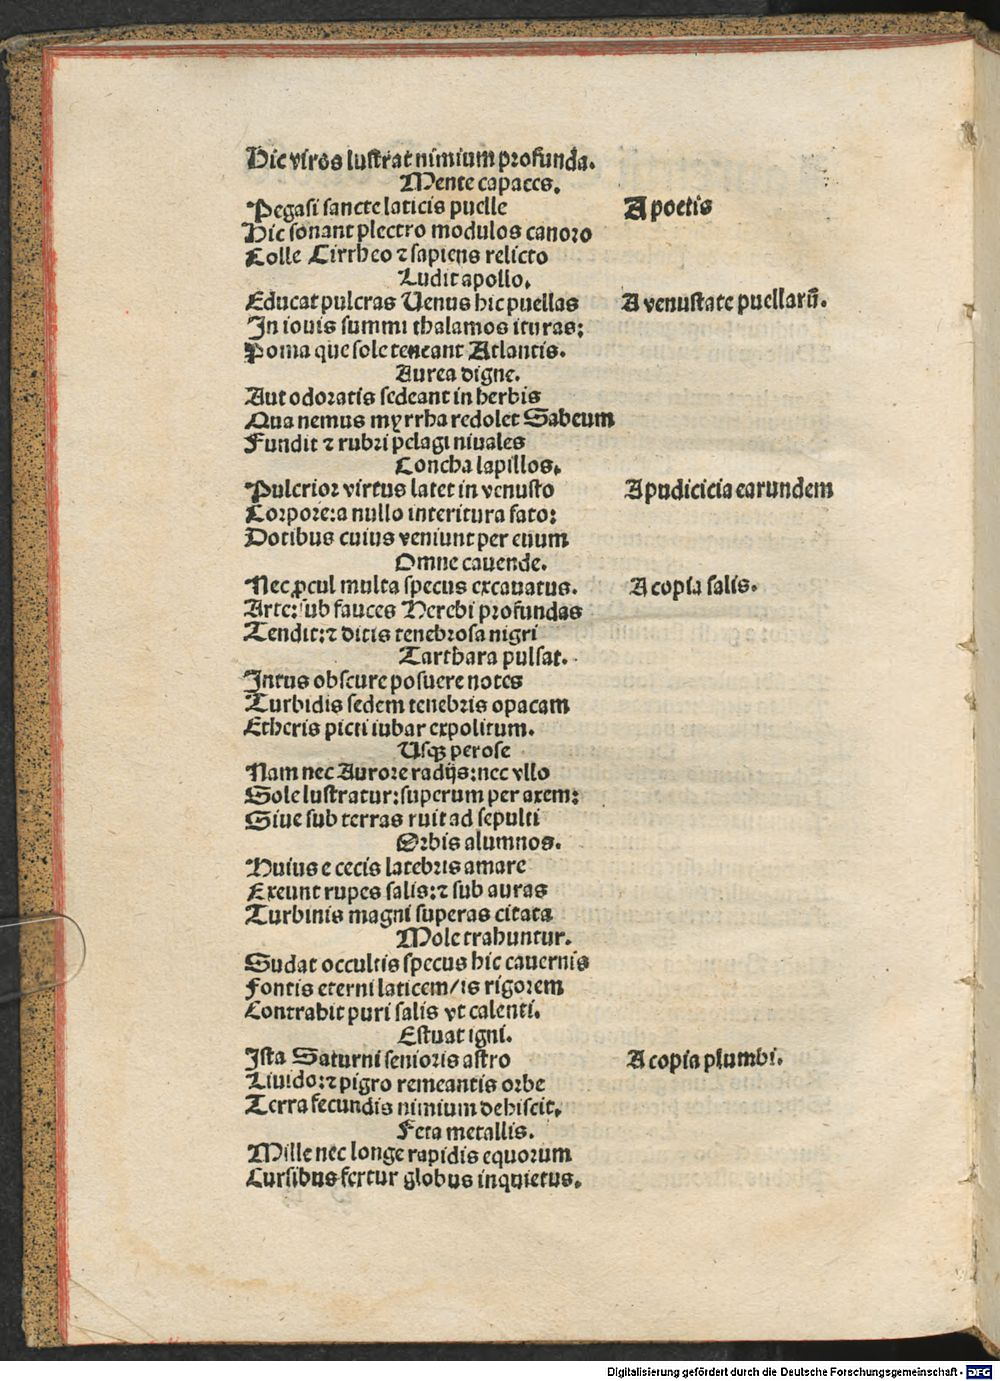 Hic viros lustrat nimium profunda.
Mente capaces.
Pegasi sancte laticis puelle
A poetis
Hic sonant plectro modulos canoro
Colle Cirrheo ⁊ sapiens relicto
Ludit apollo.
Educat pulcras Uenus hic puellas
A venustate puellarū.
In iouis summi thalamos ituras:
Poma que sole teneant Atlantis.
Aurea digne.
Aut odoratis sedeant in herbis
Qua nemus myrrha redolet Sabeum
Fundit ⁊ rubri pelagi niuales
Concha lapillos.
Pulcrior virtus latet in venusto
A pudicicia earundem
Corpore:a nullo interitura fato:
Dotibus cuius veniunt per euum
Omne cauende.
Nec ꝓcul multa specus excauatus.
A copia salis.
Arte:sub fauces Herebi profundas
Tendit:⁊ ditis tenebrosa nigri
Tarthara pulsat.
Intus obscure posuere notes
Turbidis sedem tenebris opacam
Etheris picti iubar expolitum.
Usqꝫ perose
Nam nec Aurore radijs:nec vllo
Sole lustratur:superum per axem:
Siue sub terras ruit ad sepulti
Orbis alumnos.
Huius e cecis latebris amare
Exeunt rupes salis:⁊ sub auras
Turbinis magni superas citata
Mole trahuntur.
Sudat occultis specus hic cauernis
Fontis eterni laticem/is rigorem
Contrahit puri salis vt calenti.
Estuat igni.
Ista Saturni senioris astro
A copia plumbi.
Liuido:⁊ pigro remeantis orbe
Terra fecundis nimium dehiscit,
Feta metallis.
Mille nec longe rapidis equorum
Cursibus fertur globus inquietus.
Digitalisierung gefördert durch die Deutsche Forschungsgemeinschaft - DFG